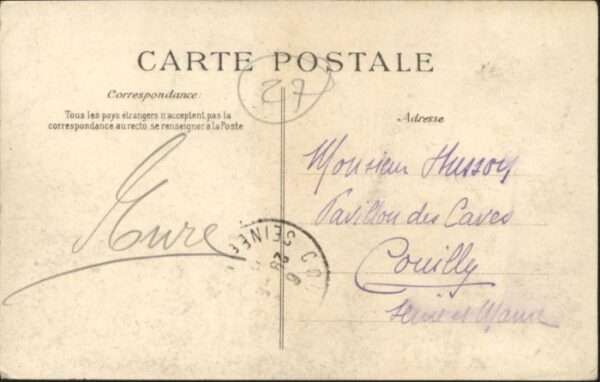 CARTE POSTALE
27
Correspondance:
Tous les pays étrangers n'acceptent pas la
correspondance au recto, se renseigner à la Poste
Adresse
Eure
Monsieur Husson
Pavillon des Caves
Couilly
Seine et Marne
SEINE
28
9